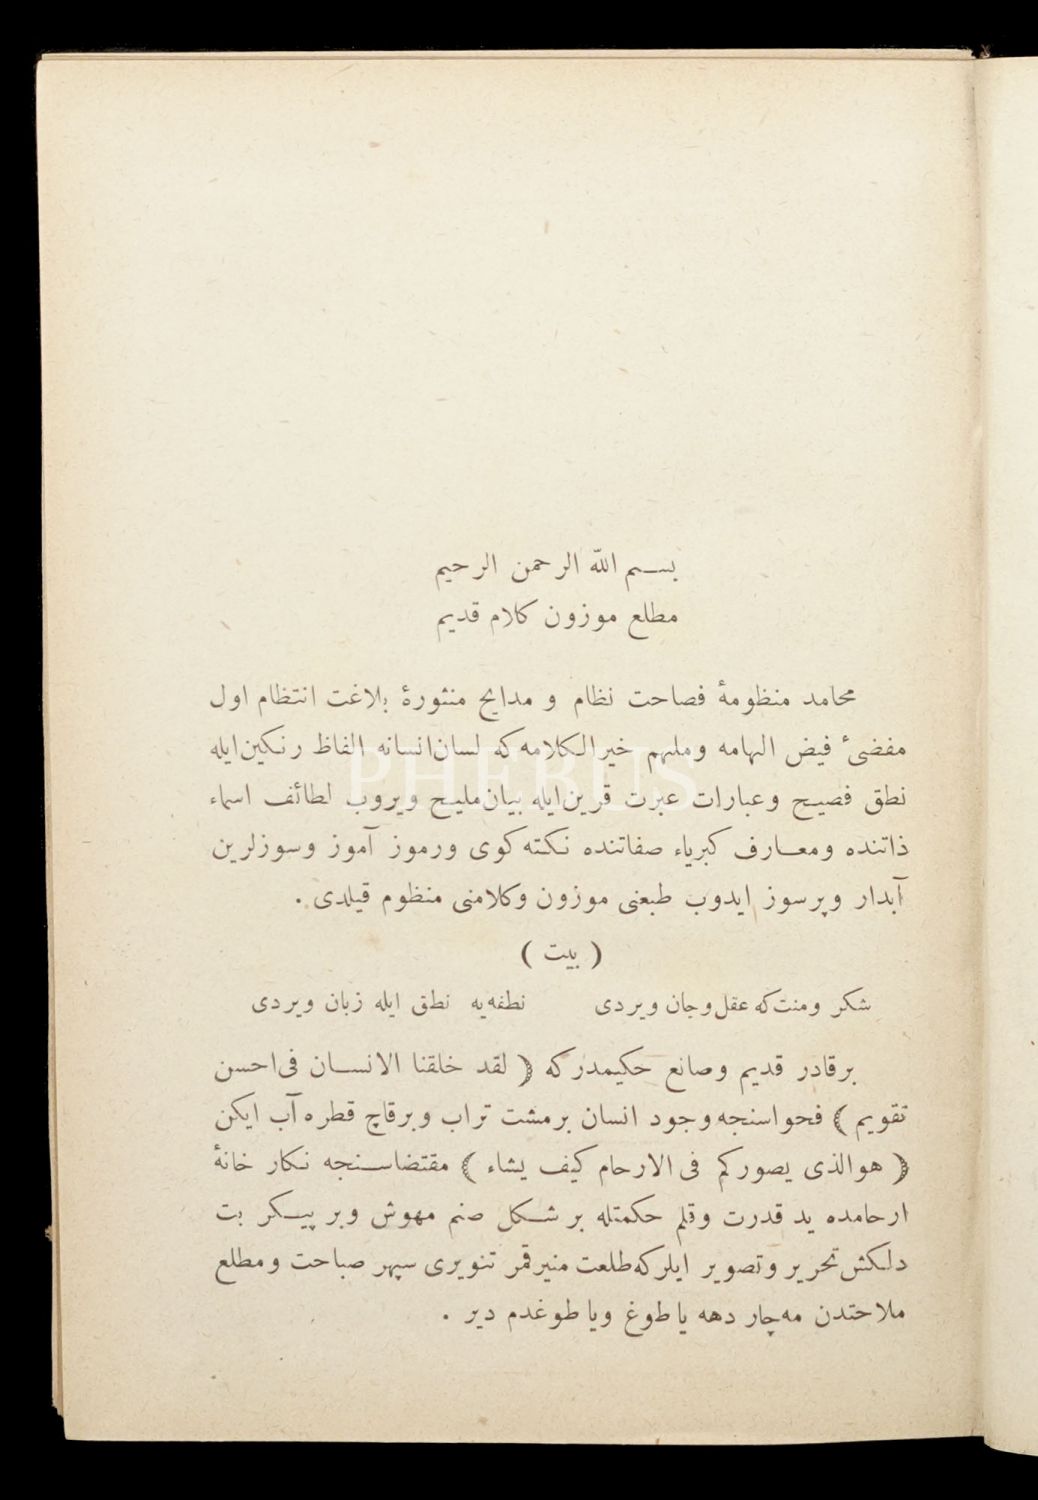 بسم الله الرحمن الرحيم
مطلع موزون كلام قديم
محامد منظومهٔ فصاحت نظام و مدايح منثورهٔ بلاغت انتظام اول
مفضیٔ فيض الهامه وملهم خيرالكلامه كه لسان انسانه الفاظ رنكين ايله
نطق فصيح وعبارات عبرت قرين ايله بيان مليح ويروب لطائف اسماء
ذاتنده ومعارف كبرياء صفاتنده نكته كوى ورموز آموز وسوزلرين
آبدار وپرسوز ايدوب طبعنى موزون وكلامنى منظوم قيلدى .
( بيت )
شكر ومنت كه عقل وجان ويردى نطفه‌يه نطق ايله زبان ويردى
برقادر قديم وصانع حكيمدركه ﴿ لقد خلقنا الانسان فى احسن
تقويم ﴾ فحواسنجه وجود انسان برمشت تراب وبرقاچ قطره آب ايكن
﴿ هوالذى يصوركم فى الارحام كيف يشاء ﴾ مقتضاسنجه نكار خانهٔ
ارحامده يد قدرت وقلم حكمتله بر شكل صنم مهوش وبر پيكر بت
دلكش تحرير وتصوير ايلركه طلعت منيرقمر تنويرى سپهر صباحت ومطلع
ملاحتدن مه چار دهه ياطوغ ويا طوغدم دير .
PHEBUS